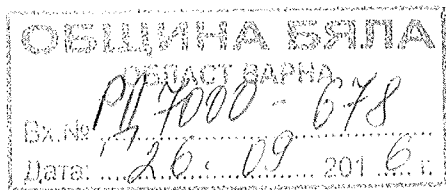 ОБЩИНА БЯЛА
ОБЛАСТ ВАРНА
Вх.№ РД7000 - 678
Дата: 26. 09 2016 г.